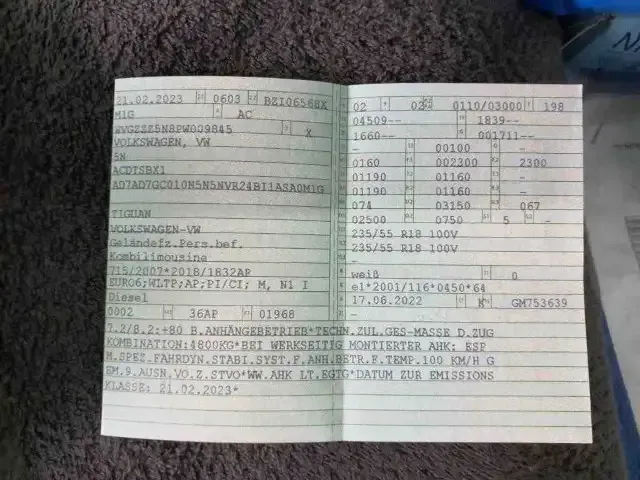 21.02.2023 0603 BZI06568X
M1G AC
WVGZZZ5N8PW009845 X
VOLKSWAGEN, VW
5N
ACDTSBX1
AD7AD7GC010N5N5NVR24BI1ASA0M1G
TIGUAN
VOLKSWAGEN-VW
Geländefz.Pers.bef.
Kombilimousine
715/2007*2018/1832AP
EURO6;WLTP;AP;PI/CI; M, N1 I
Diesel
0002 36AP 01968
02 02 0110/03000 198
04509-- 1839--
1660-- 001711--
- 00100 -
0160 002300 2300
01190 01160 -
01190 01160 -
074 03150 067
02500 0750 5 -
235/55 R18 100V
235/55 R18 100V
-
weiß 0
e1*2001/116*0450*64
17.06.2022 K GM753639
-
7.2/8.2:+80 B.ANHÄNGEBETRIEB*TECHN.ZUL.GES-MASSE D.ZUG
KOMBINATION:4800KG*BEI WERKSEITIG MONTIERTER AHK: ESP
M.SPEZ.FAHRDYN.STABI.SYST.F.ANH.BETR.F.TEMP.100 KM/H G
EM.9.AUSN.VO.Z.STVO*WW.AHK LT.EGTG*DATUM ZUR EMISSIONS
KLASSE: 21.02.2023*